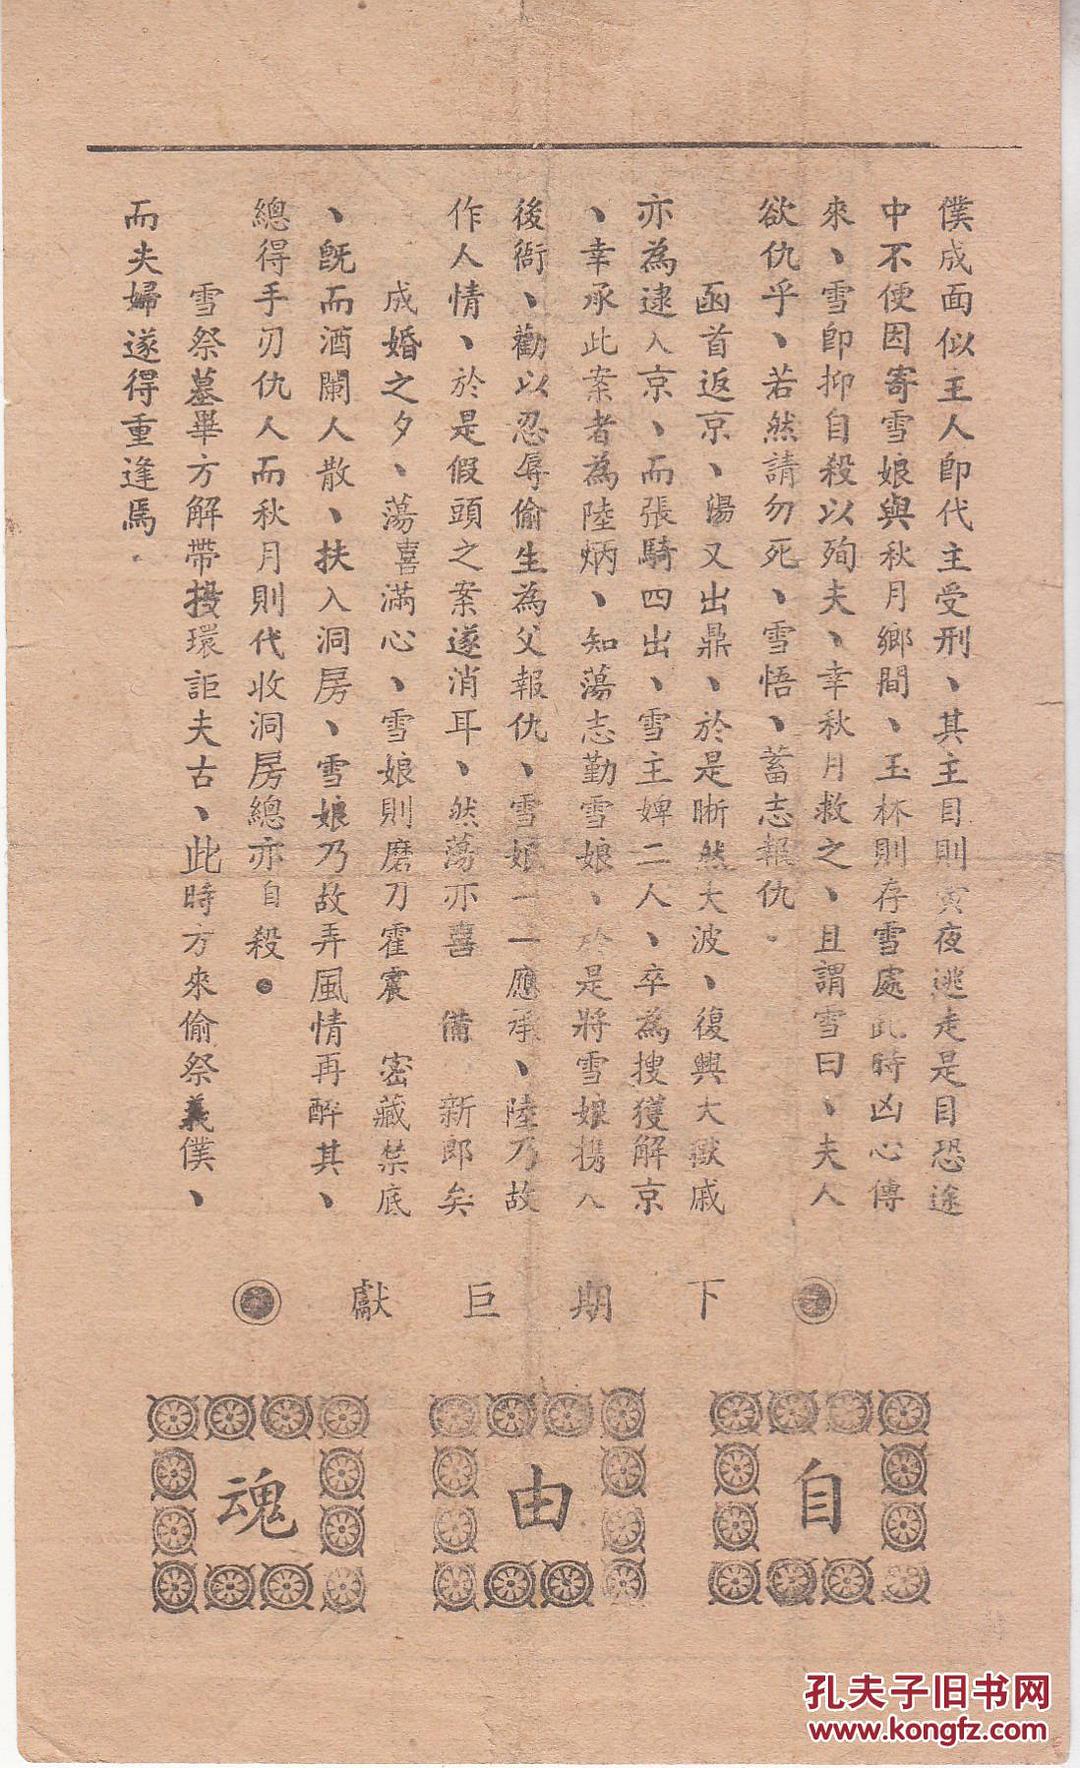 僕成面似主人卽代主受刑、其主目則寅夜逃走是目恐途
中不便因寄雪娘與秋月鄉間、玉杯則存雪處此時凶心傳
來、雪卽抑自殺以殉夫、幸秋月救之、且謂雪曰、夫人
欲仇乎、若然請勿死、雪悟、蓄志報仇。
函首返京、湯又出鼎、於是晰然大波、復興大獄戚
亦為逮入京、而張騎四出、雪主婢二人、卒為搜獲解京
、幸承此案者為陸炳、知蕩志勤雪娘、於是將雪娘携入
後衙、勸以忍辱偷生為父報仇、雪娘一一應承、陸乃故
作人情、於是假頭之案遂消耳、然蕩亦喜 備 新郎矣
成婚之夕、蕩喜滿心、雪娘則磨刀霍震 密藏禁底
、旣而酒闌人散、扶入洞房、雪娘乃故弄風情再醉其、
總得手刃仇人而秋月則代收洞房總亦自殺。
雪祭墓畢方解帶投環詎夫古、此時方來偷祭義僕、
而夫婦遂得重逢馬．
下期巨獻
自由魂
孔夫子旧书网
www.kongfz.com